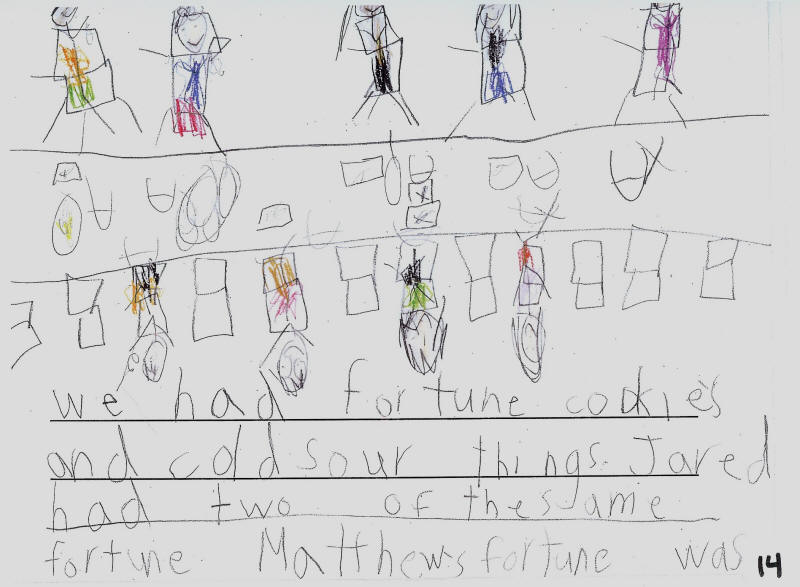 we had fortune cookies
and cold sour things. Jared
had two of the same
fortune Matthews fortune was
14